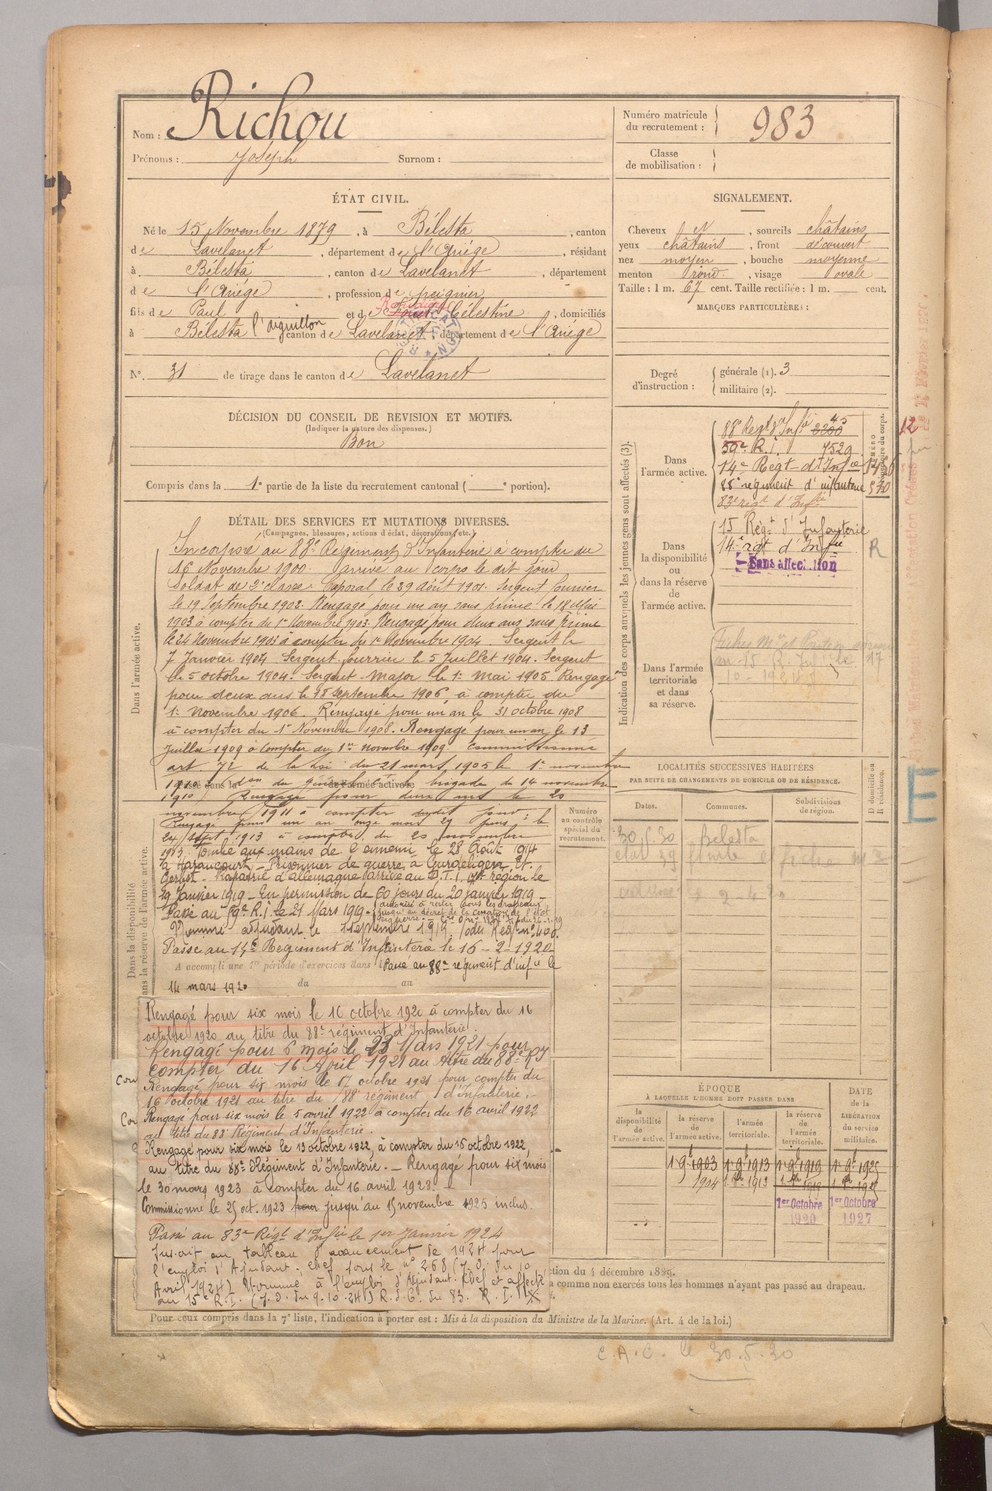 Nom : Richou
Prénoms : Joseph Surnom :
Numéro matricule du recrutement : 983
Classe de mobilisation :
ÉTAT CIVIL.
Né le 15 Novembre 1879, à Bélesta, canton
de Lavelanet, département de l'Ariége, résidant
à Bélesta, canton de Lavelanet, département
de l'Ariége, profession de peignier
fils de Paul et de Célestine, domiciliés
à Bélesta l'aiguillon canton de Lavelanet, département de l'Ariége
N° 31 de tirage dans le canton de Lavelanet
SIGNALEMENT.
Cheveux, sourcils châtains
yeux châtains, front découvert
nez moyen, bouche moyenne
menton rond, visage ovale
Taille : 1 m. 67 cent. Taille rectifiée : 1 m. cent.
MARQUES PARTICULIÈRES :
Degré d'instruction : générale (1). 3
militaire (2).
DÉCISION DU CONSEIL DE REVISION ET MOTIFS.
(Indiquer la nature des dispenses.)
Bon
Compris dans la 1e partie de la liste du recrutement cantonal ( portion).
DÉTAIL DES SERVICES ET MUTATIONS DIVERSES.
(Campagnes, blessures, actions d'éclat, décorations, etc.)
Dans l'armée active.
Incorporé au 88e Régiment d'Infanterie à compter du
16 Novembre 1900. Arrivé au corps le dit jour
Soldat de 2e classe. Caporal le 29 août 1901. Sergent fourrier
le 19 Septembre 1902. Rengagé pour un an sans prime le 18 Mai
1903 à compter du 1er Novembre 1903. Rengagé pour deux ans sans prime
le 24 Novembre 1903 à compter du 1er Novembre 1904. Sergent le
7 Janvier 1904. Sergent fourrier le 5 Juillet 1904. Sergent
le 5 octobre 1904. Sergent-Major le 1er Mai 1905 Rengagé
pour deux ans le 18 Septembre 1906 à compter du
1er Novembre 1906. Rengagé pour un an le 31 octobre 1908
à compter du 1er Novembre 1908. Rengagé pour un an le 13
Juillet 1909 à compter du 1er Novembre 1909. Commissionné
art. 72 de la loi du 21 mars 1905 le 1er novembre
1910 brigade du 14 novembre
1910) Rengagé pour deux ans le 20
novembre 1911 à compter dudit jour :
Rengagé pour un an onze mois 29 jours le
24 1913 à compter du 20 novembre
1913. Tombé aux mains de l'ennemi le 28 Août 1914
à Haraucourt. Prisonnier de guerre à
Rapatrié d'Allemagne arrivé au D.T.I. région le
29 Janvier 1919. En permission de 60 jours du 20 janvier 1919.
Passé au 59e R.I. le 21 Mars 1919.
Nommé adjudant le 1 septembre 1919.
Passé au 14e Régiment d'Infanterie le 16-2-1920
A accompli une 1re période d'exercices dans
Passé au 88e régiment d'infie le
14 mars 1920
du au
Rengagé pour six mois le 16 octobre 1920 à compter du 16
octobre 1920 au titre du 88e régiment d'Infanterie.
Rengagé pour 6 mois le 23 Mars 1921 pour
compter du 16 Avril 1921 au titre du 88e RI
Rengagé pour six mois le 17 octobre 1921 pour compter du
16 octobre 1921 au titre du 88e régiment d'Infanterie.
Rengagé pour six mois le 5 avril 1922 à compter du 16 avril 1922
au titre du 88e Régiment d'Infanterie.
Rengagé pour six mois le 13 octobre 1922, à compter du 16 octobre 1922,
au titre du 88e Régiment d'Infanterie. - Rengagé pour six mois
le 30 mars 1923 à compter du 16 avril 1923.
Commissionné le 25 oct. 1923 pour jusqu'au 15 novembre 1925 inclus.
Passé au 83e Régt d'Infie le 1er Janvier 1924
Inscrit au tableau d'avancement de 1924 pour
l'emploi d'Adjudant-chef sous le n° 268 (J.O. du 10
Avril 1924) Nommé à l'emploi d'Adjudant-Chef et affecté
au 15e R.I. (J.O. du 9-10-24) R.d.C. du 83e R.I.
Dans la disponibilité ou dans la réserve de l'armée active.
Numéro au contrôle spécial du recrutement.
Indication des corps auxquels les jeunes gens sont affectés (3).
Dans l'armée active.
88e Régt d'Infie
59e R.I. 7529
14e Régt d'Infie
88e régiment d'infanterie
83e régt d'Infie
Dans la disponibilité ou dans la réserve de l'armée active.
15 Régt d'Infanterie
14e rgt d'Infie
R
Sans affectation
Dans l'armée territoriale et dans sa réserve.
LOCALITÉS SUCCESSIVES HABITÉES
PAR SUITE DE CHANGEMENTS DE DOMICILE OU DE RÉSIDENCE.
Dates. Communes. Subdivisions de région. D domicile ou R résidence.
30.5.30 Belesta
E
ÉPOQUE
À LAQUELLE L'HOMME DOIT PASSER DANS
la disponibilité de l'armée active. la réserve de l'armée active. l'armée territoriale. la réserve de l'armée territoriale.
DATE de la LIBÉRATION du service militaire.
1er 9bre 1903 1er 9bre 1913 1er 9bre 1919
1904
1er Octobre 1920 1er Octobre 1927
à comme non exercés tous les hommes n'ayant pas passé au drapeau.
Pour ceux compris dans la 7e liste, l'indication à porter est : Mis à la disposition du Ministre de la Marine. (Art. 4 de la loi.)
C.A.C. le 30.5.30